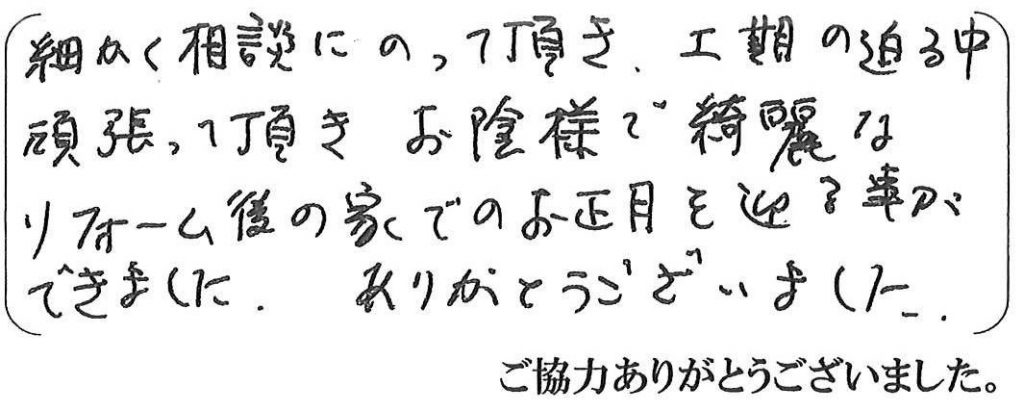 細かく相談にのって頂き、工期の迫る中
頑張って頂き お陰様で綺麗な
リフォーム後の家でのお正月を迎る事が
できました. ありがとうございました.
ご協力ありがとうございました。